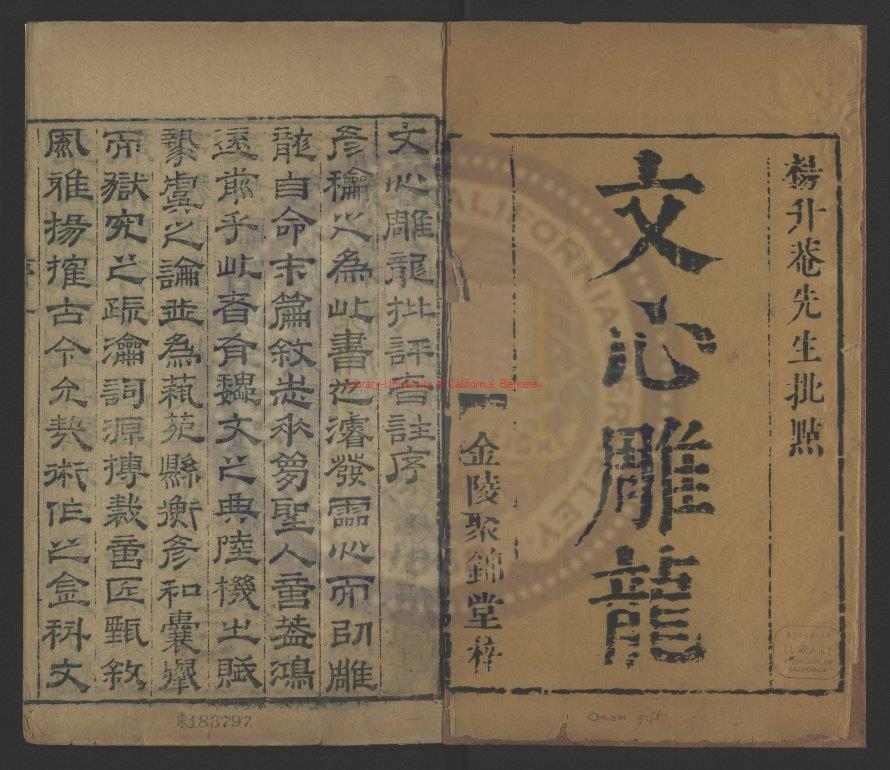 楊升菴先生批點
文心雕龍
金陵聚錦堂梓
文心雕龍批評音註序
彦和之為此書也濬發靈心而以雕
龍自命末篇敘志夢聖人意益鴻
遠前乎此者有魏文之典陸機之賦
摯虞之論並為藝苑縣衡彦和囊舉
而獄究之疏瀹詞源摶裁意匠甄敘
風雅揚搉古今允契術作之金科文
Library University of California, Berkeley
183797
Onon gift
BERKELEY
LIBRARY
UNIVERSITY OF
CALIFORNIA